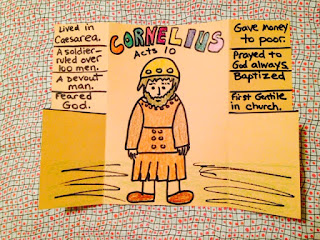 Lived in
Caesarea.
A soldier-
ruled over
100 men.
A devout
man.
Feared
God.
CORNELIUS
Acts 10
Gave money
to poor.
Prayed to
God always
Baptized
First Gentile
in church.